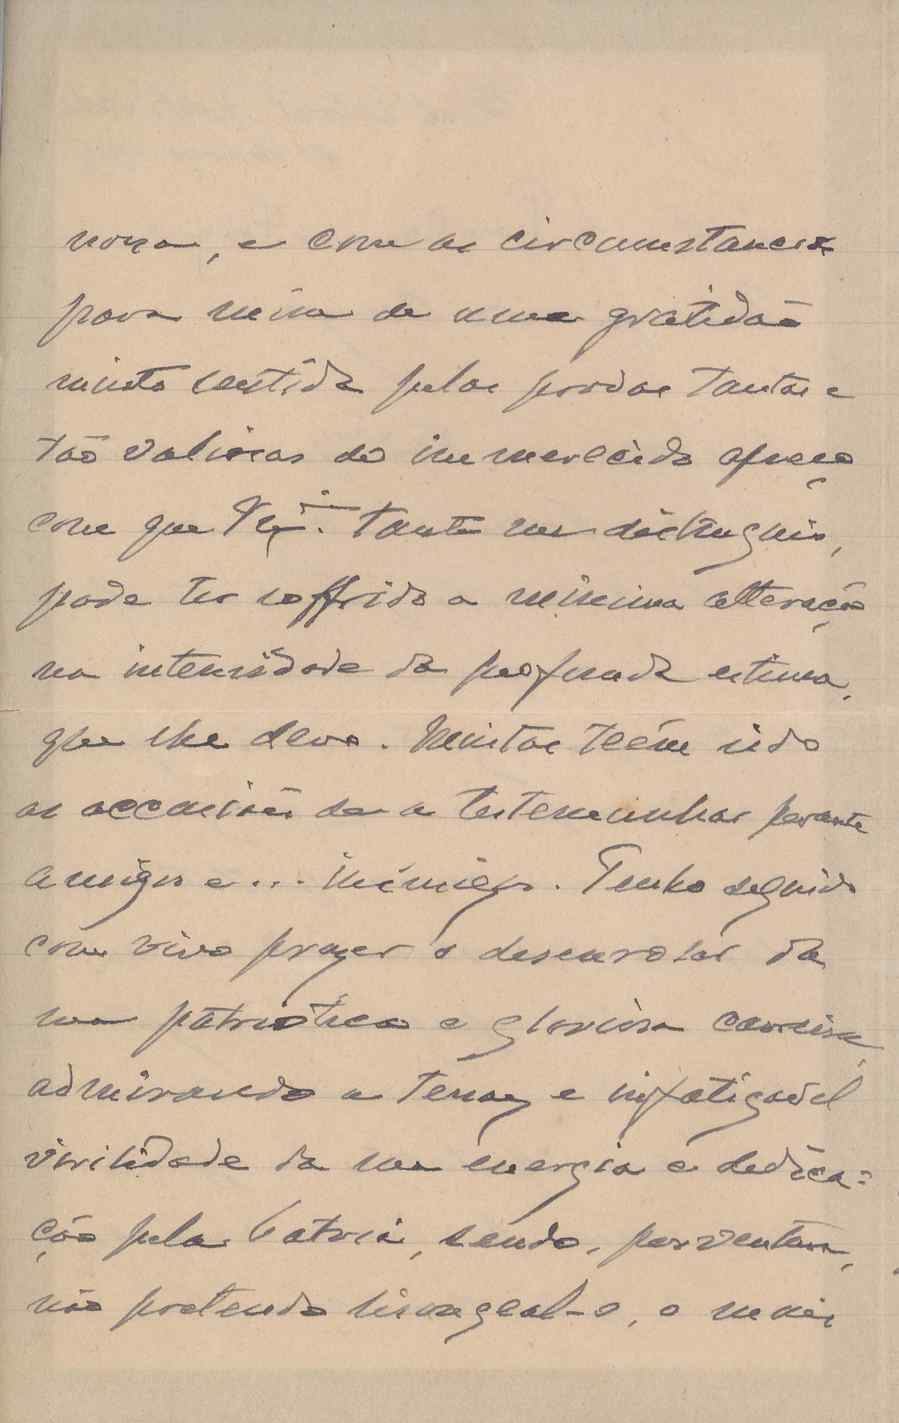 nossa, e com as circumstancias
para mim de uma gratidão
muito sentida pelas provas tantas e
tão valiosas do immerecido apreço
com que V. Ex.ª tanto me distinguiu,
pode ter soffrido a minima alteração
na intensidade da profunda estima,
que lhe devo. Muitas teem sido
as occasiões de a testemunhar perante
amigos e... inimigos. Tenho seguido
com vivo prazer o desenrolar da
sua patriotica e gloriosa carreira,
admirando a tenaz e infatigavel
virilidade da sua energia e dedica=
ção pela Patria, sendo, porventura,
não pretendo lisongeal-o, o mais